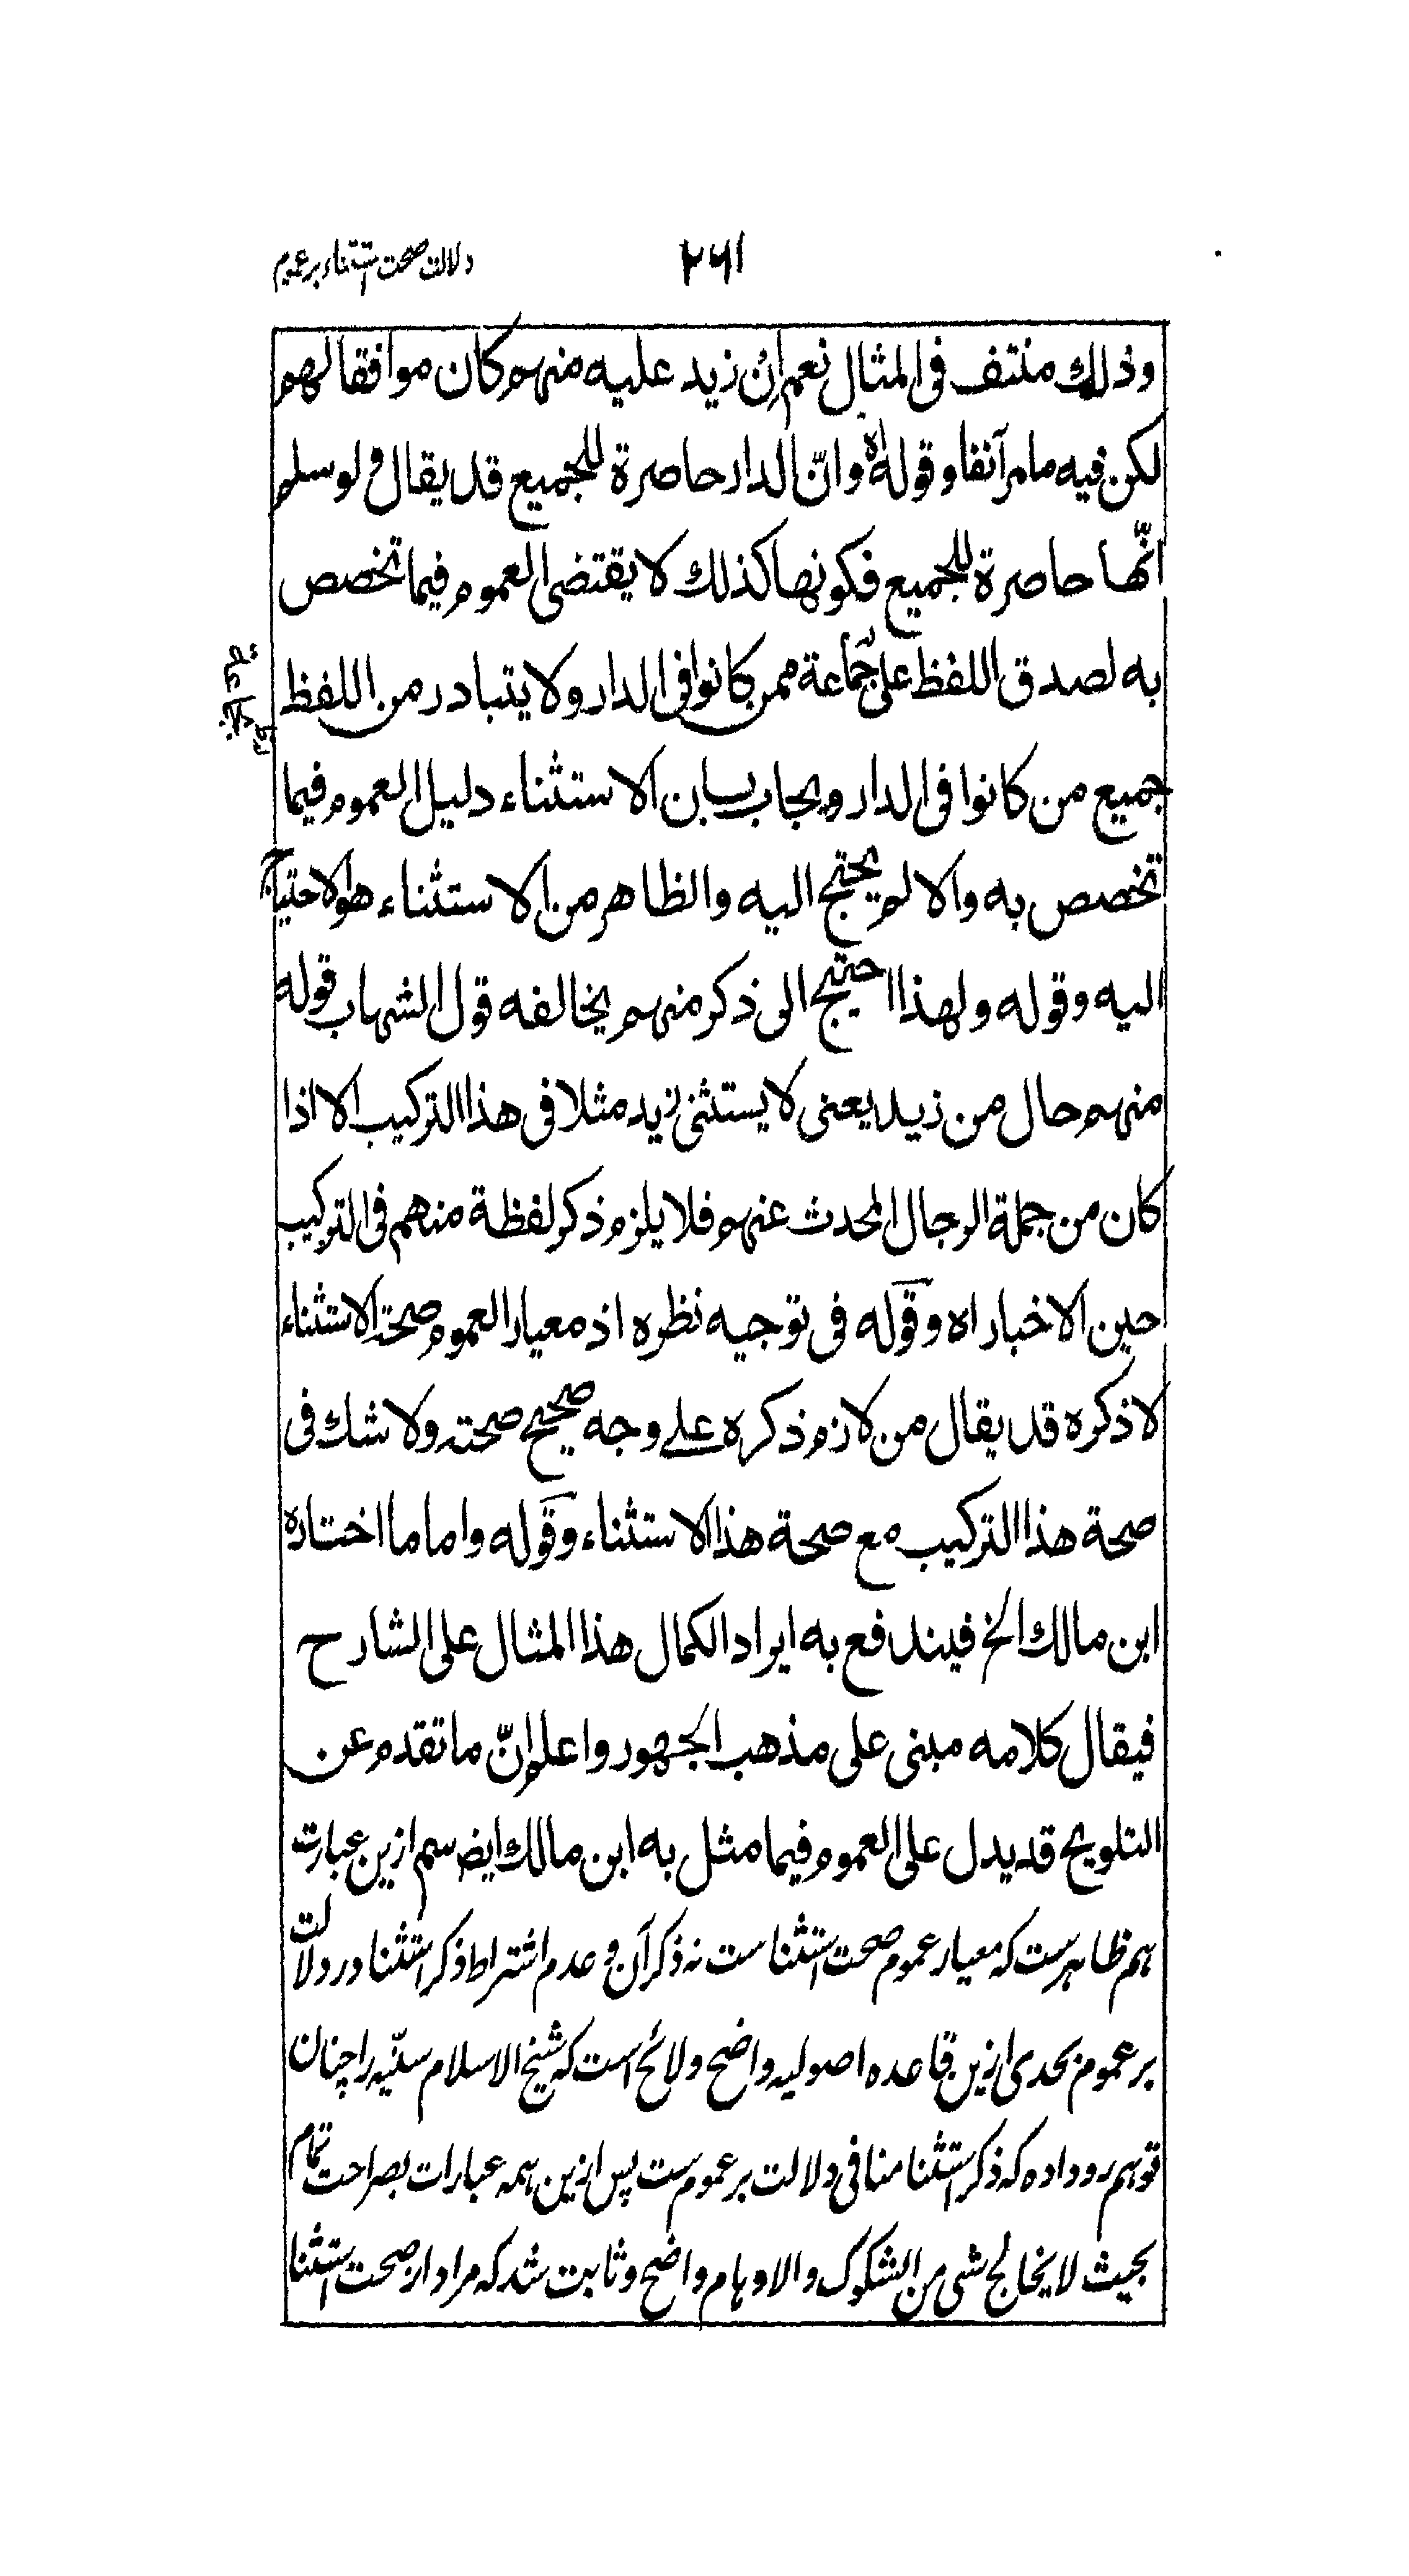 ۲۶۱
دلالت صحت استثناء بر عموم
وذلك منتف فى المثال نعم ان زيد عليه منهم كان موافقا لهم
لكن فيه ما مر آنفا وقوله اه وانّ الدار حاصرة للجميع قد يقال ولو سلم
انّها حاصرة للجميع فكونها كذلك لا يقتضى العموم فيما تخصص
به لصدق اللفظ على جماعة ممن كانوا فى الدار ولا يتبادر من اللفظ
جميع من كانوا فى الدار ويجاب بان الاستثناء دليل العموم فيما
تخصص به والا لم يحتج اليه والظاهر من الاستثناء هو الاحتياج
اليه وقوله ولهذا احتيج الى ذكر منهم يخالفه قول الشهاب قوله
منهم حال من زيد يعنى لا يستثنى زيد مثلا فى هذا التركيب الا اذا
كان من جملة الرجال المحدث عنهم فلا يلزم ذكر لفظة منهم فى التركيب
حين الاخبار اه وقوله فى توجيه نظره اذ معيار العموم صحة الاستثناء
لا ذكره قد يقال من لازم ذكره على وجه صحيح صحته ولا شك فى
صحة هذا التركيب مع صحة هذا الاستثناء وقوله واما ما اختاره
ابن مالك الخ فيندفع به ايراد الكمال هذا المثال على الشارح
فيقال كلامه مبنى على مذهب الجمهور واعلم انّ ما تقدم عن
التلويح قد يدل على العموم فيما مثل به ابن مالك ايض سم ازين عبارت
هم ظاهرست كه معيار عموم صحت استثناست نه ذكر آن و عدم اشتراط ذكر استثنا در دلالت
بر عموم بحدى ازين قاعده اصوليه واضح ولائح است كه شيخ الاسلام سنّيه را چنان
توهم رو داده كه ذكر استثنا منافى دلالت بر عموم ست پس ازين همه عبارات بصراحت تمام
بحيث لا يخالج شى من الشكوك والاوهام واضح وثابت شد كه مراد از صحت استثنا